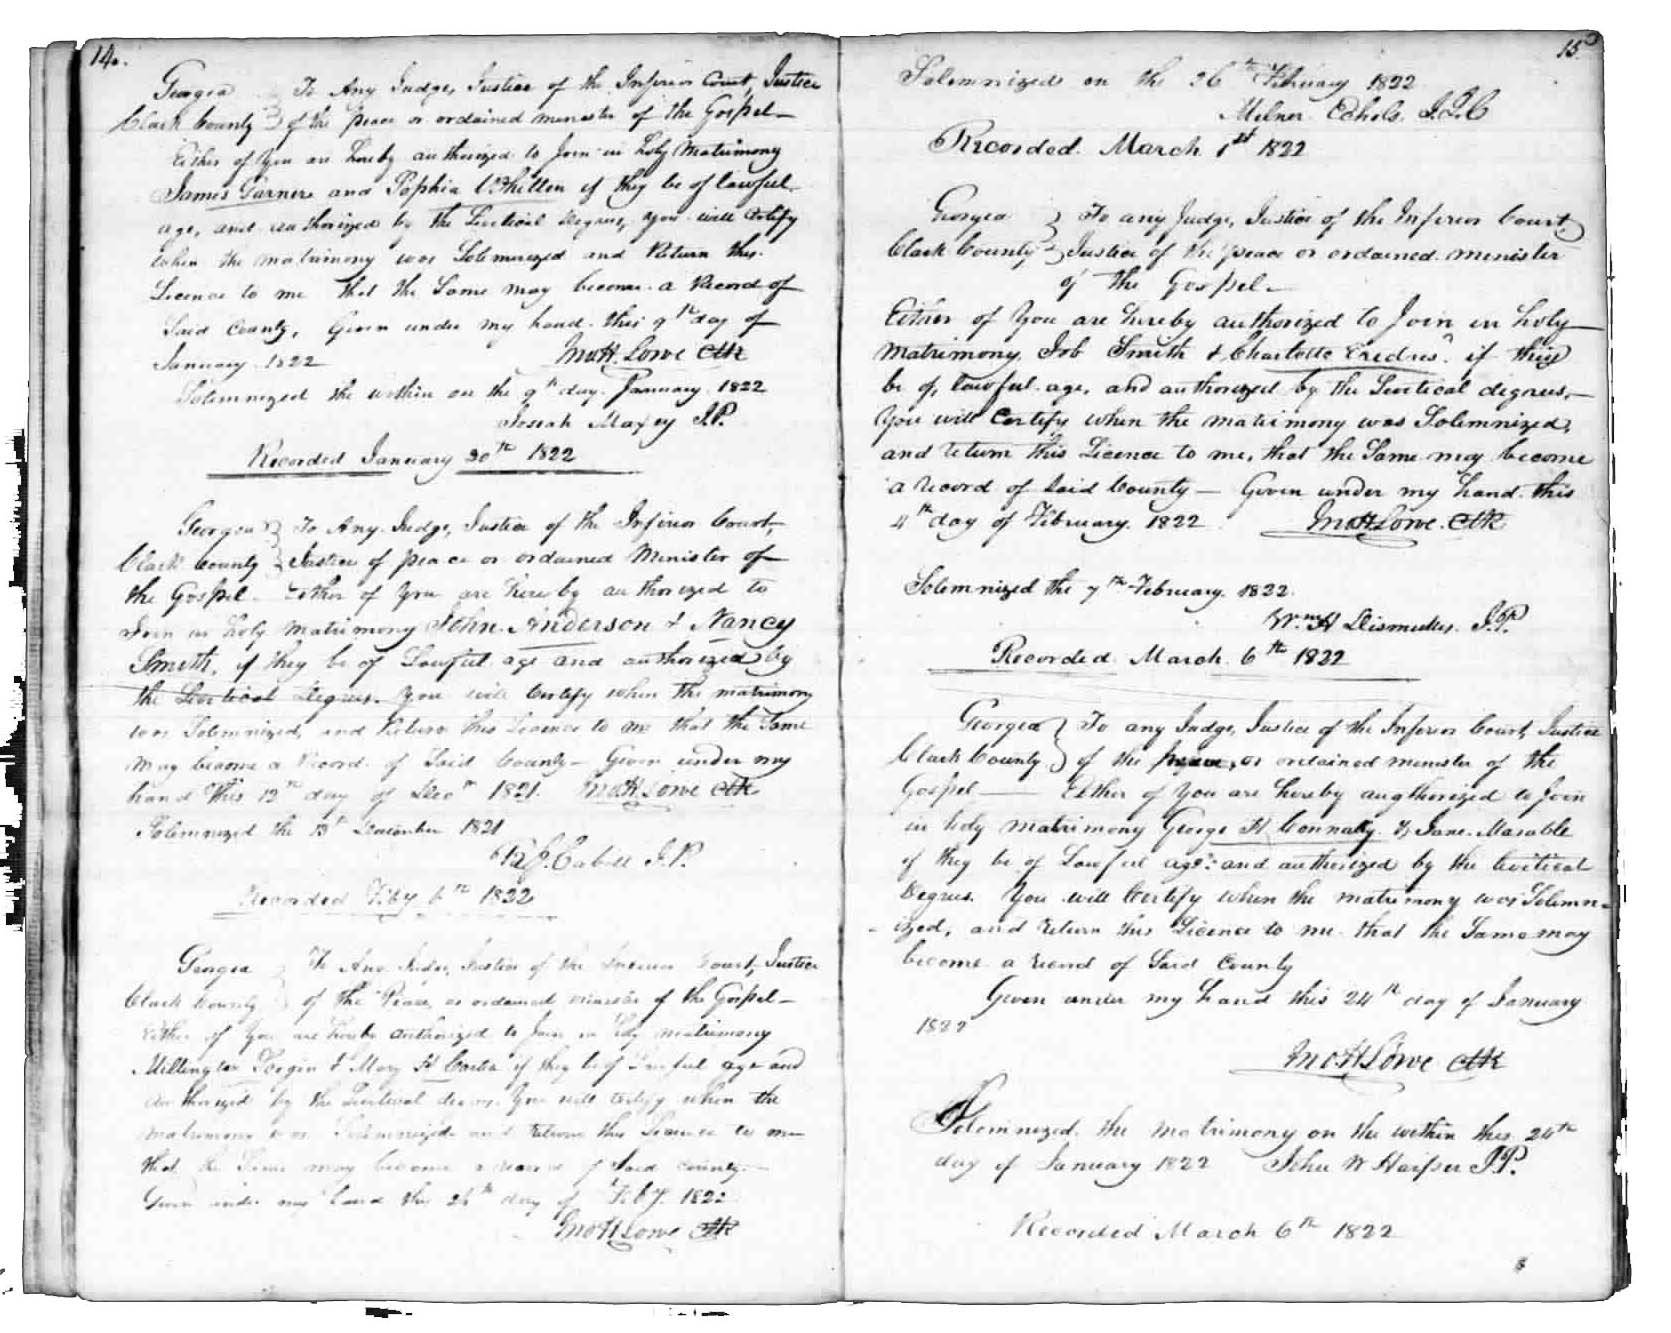 14.
Georgia } To Any Judge, Justice of the Inferior Court, Justice
Clark County } of the peace or ordained minister of the Gospel—
Either of You are hereby authorized to Join in Holy Matrimony
James Garner and Sophia Whitten if they be of lawful
age, and authorized by the Levitical degrees, you will Certify
when the matrimony was Solemnized and Return this
Licence to me that the Same may become a Record of
Said County, Given under my hand this 9th day of
January 1822 Jno H Lowe Clk
Solemnized the within on the 9th day January 1822
Josiah Maxey J.P.
Recorded January 30th 1822
Georgia } To Any Judge, Justice of the Inferior Court,
Clark County } Justice of peace or ordained Minister of
the Gospel— Either of You are hereby authorized to
Join in holy matrimony John Anderson & Nancy
Smith, if they be of Lawful age and authorized by
the Levitical Degrees. You will Certify when the matrimony
was Solemnized, and Return this Licence to me that the Same
may become a Record of Said County— Given under my
hand this 12th day of Decr 1821. Jno H Lowe Clk
Solemnized the 13th December 1821
Cabell J.P.
Recorded Feby 6th 1822
Georgia } To Any Judge, Justice of the Inferior Court, Justice
Clark County } of the Peace, or ordained minister of the Gospel—
Either of You are hereby authorized to Join in holy matrimony
Millington & Mary H Carter if they be of Lawful age and
authorized by the Levitical degrees. You will Certify when the
matrimony was Solemnized and return this Licence to me
that the Same may become a record of Said County—
Given under my hand this 26th day of Feby. 1822
Jno H Lowe Clk
15
Solemnized on the 26th February 1822
Milner Echols J.I.C
Recorded March 1st 1822
Georgia } To any Judge, Justice of the Inferior Court,
Clark County } Justice of the peace or ordained minister
of the Gospel—
Either of You are hereby authorized to Join in holy
matrimony, Job Smith & Charlotte if they
be of lawful age, and authorized by the Levitical degrees,—
You will Certify when the matrimony was Solemnized,
and return this Licence to me, that the Same may become
a record of Said County— Given under my hand this
4th day of February 1822 Jno H Lowe Clk
Solemnized the 7th February 1822.
Wm H Dismukes J.P.
Recorded March 6th 1822
Georgia } To any Judge, Justice of the Inferior Court, Justice
Clark County } of the peace, or ordained minister of the
Gospel— Either of You are hereby augthorized to Join
in holy matrimony George H Connally & Jane Marable
if they be of Lawful age: and authorized by the Levitical
Degrees. You will Certify when the matrimony was Solemn-
ized, and return this Licence to me that the Same may
become a record of Said County
Given under my hand this 24th day of January
1822
Jno H Lowe Clk
Solemnized the matrimony on the within this 24th
day of January 1822 John W Harper J.P.
Recorded March 6th 1822